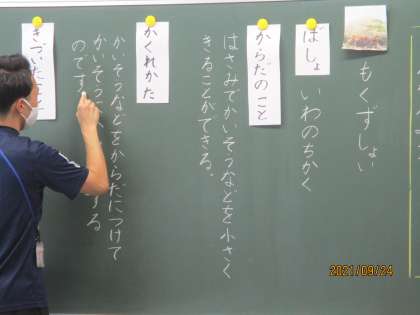 もくずしょい
ばしょ
いわのちかく
からだのこと
はさみでかいそうなどを小さく
きることができる。
かくれかた
かいそうなどをからだにつけて
かいそう する
のです
きづいた
2021/09/24